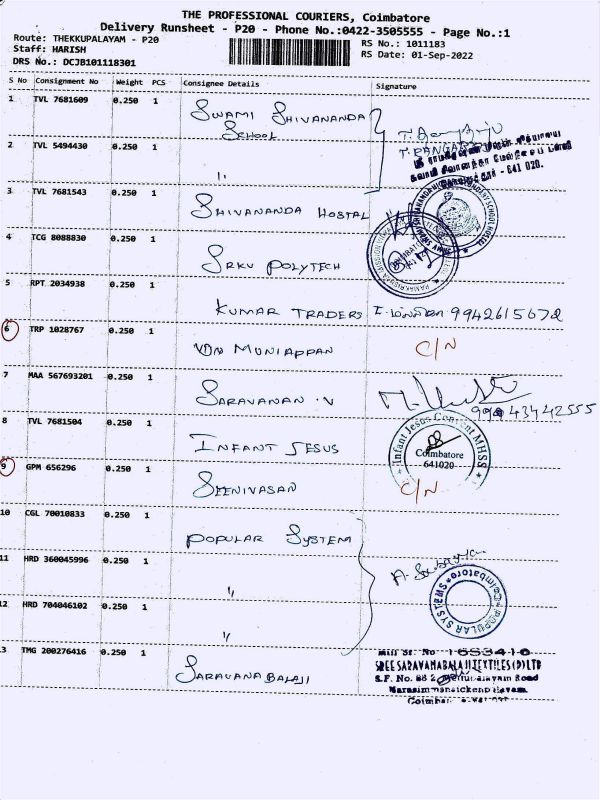 THE PROFESSIONAL COURIERS, Coimbatore
Delivery Runsheet - P20 - Phone No.:0422-3505555 - Page No.:1
Route: THEKKUPALAYAM - P20
Staff: HARISH
DRS No.: DCJB101118301
RS No.: 1011183
RS Date: 01-Sep-2022
S No Consignment No Weight PCS Consignee Details Signature
1 TVL 7681609 0.250 1 SWAMI SHIVANANDA
SCHOOL
2 TVL 5494430 0.250 1 "
T. RANGARAJU
- 641 020.
3 TVL 7681543 0.250 1 SHIVANANDA HOSTAL
4 TCG 8088830 0.250 1 SRKV POLYTECH
5 RPT 2034938 0.250 1 KUMAR TRADERS 9942615672
6 TRP 1028767 0.250 1 VDN MUNIAPPAN C/N
7 MAA 567693201 0.250 1 SARAVANAN .V
8 TVL 7681504 0.250 1 INFANT JESUS
Infant Jesus Convent MHSS
Coimbatore
641020
9 GPM 656296 0.250 1 SEENIVASAN C/N
10 CGL 70010833 0.250 1 POPULAR SYSTEM
11 HRD 360045996 0.250 1 "
POPULAR SYSTEMS
Coimbatore
12 HRD 704046102 0.250 1 "
13 TMG 200276416 0.250 1 SARAVANA BALAJI
SREE SARAVANABALAJI TEXTILES (P) LTD
S.F. No. 88 2, Mettupalayam Road
Narasimmanaickenpalayam,